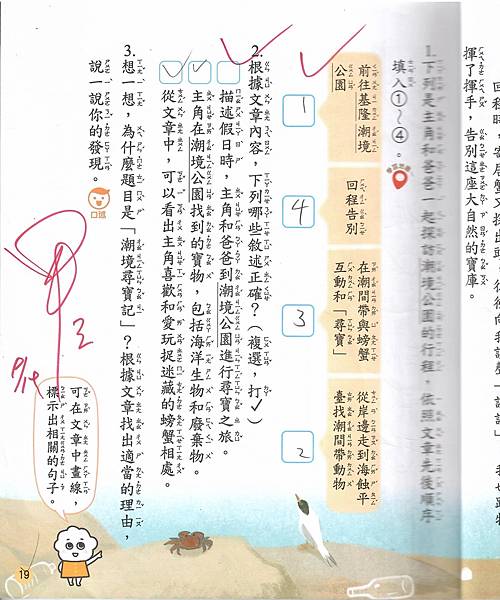 揮了揮手，告別這座大自然的寶庫。
1.下列是主角和爸爸一起探訪潮境公園的行程，依照文章先後順序
填入①～④。
前往基隆 潮境
公園
1
回程告別
4
在潮間帶與螃蟹
互動和「尋寶」
3
從岸邊走到海蝕平
臺找潮間帶動物
2
2.根據文章內容，下列哪些敘述正確？（複選，打✓）
描述假日時，主角和爸爸到潮境公園進行尋寶之旅。
✓主角在潮境公園找到的寶物，包括海洋生物和廢棄物。
✓從文章中，可以看出主角喜歡和愛玩捉迷藏的螃蟹相處。
3.想一想，為什麼題目是「潮境尋寶記」？根據文章找出適當的理由，
說一說你的發現。
口述
可在文章中畫線，
標示出相關的句子。
甲
2
19